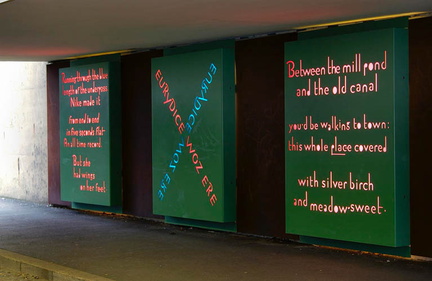 Running through the blue
length of the underpass
Nike made it
from end to end
in five seconds flat-
An all time record.
But she
had wings
on her feet
EURYDICE WOZ ERE
EURYDICE WOZ ERE
Between the mill pond
and the old canal
you'd be walking to town:
this whole place covered
with silver birch
and meadow-sweet.